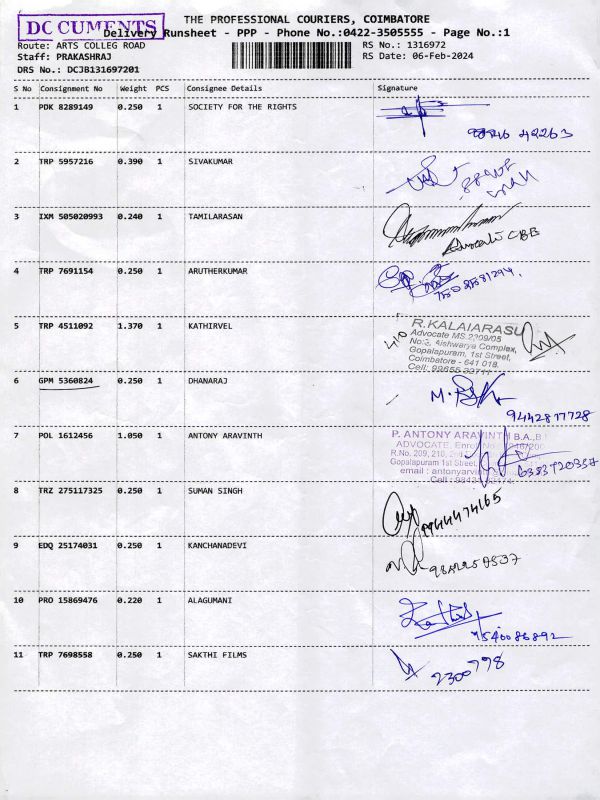 DOCUMENTS
THE PROFESSIONAL COURIERS, COIMBATORE
Delivery Runsheet - PPP - Phone No.:0422-3505555 - Page No.:1
Route: ARTS COLLEG ROAD
RS No.: 1316972
Staff: PRAKASHRAJ
RS Date: 06-Feb-2024
DRS No.: DCJB131697201
S No Consignment No Weight PCS Consignee Details Signature
1 PDK 8289149 0.250 1 SOCIETY FOR THE RIGHTS
42263
2 TRP 5957216 0.390 1 SIVAKUMAR
3 IXM 505020993 0.240 1 TAMILARASAN
Advocate CBE
4 TRP 7691154 0.250 1 ARUTHERKUMAR
5 TRP 4511092 1.370 1 KATHIRVEL
R.KALAIARASU
Advocate MS.2309/05
No:3, Aishwarya Complex,
Gopalapuram, 1st Street,
Coimbatore - 641 018.
Cell:
6 GPM 5360824 0.250 1 DHANARAJ
9442817728
7 POL 1612456 1.050 1 ANTONY ARAVINTH
P. ANTONY ARAVINTH B.A.,B
ADVOCATE,
R.No. 209, 210,
Gopalapuram 1st Street,
email : antonyarvi
6383720337
8 TRZ 275117325 0.250 1 SUMAN SINGH
9944474165
9 EDQ 25174031 0.250 1 KANCHANADEVI
10 PRO 15869476 0.220 1 ALAGUMANI
7540086892
11 TRP 7698558 0.250 1 SAKTHI FILMS
2300778